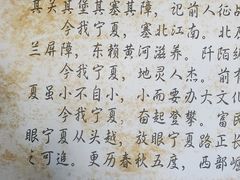 真关其堡其寨其障,记前人征战
今我宁夏,塞北江南。北及
兰屏障,东赖黄河滋养。阡陌
今我宁夏,地灵人杰。前
夏虽小不自小,小而要办大文化
今我宁夏,奋起登攀。富民
眼宁夏从头越,放眼宁夏路正长
之可追。更历春秋五度,西部崛